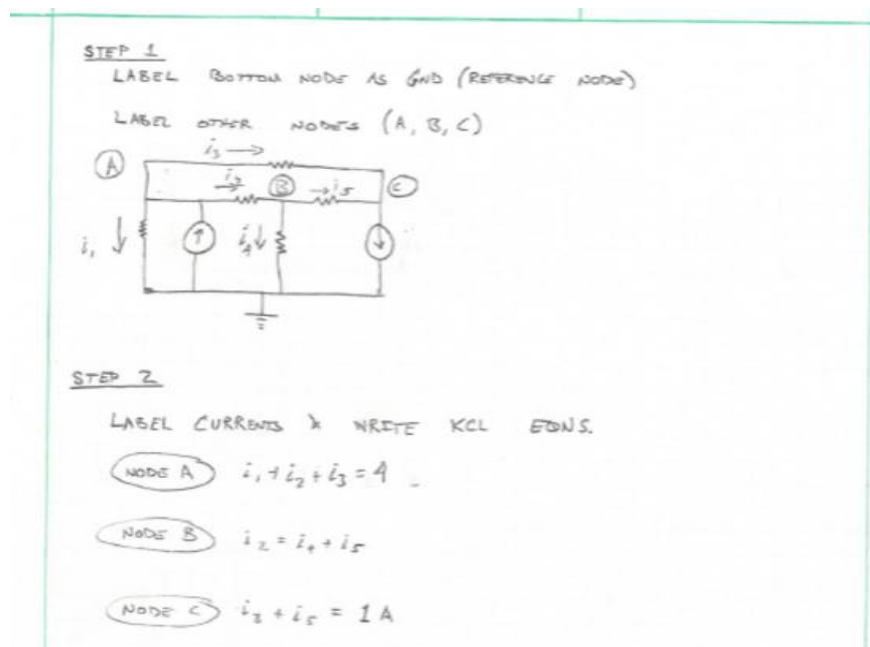 STEP 1
LABEL BOTTOM NODE AS GND (REFERENCE NODE)
LABEL OTHER NODES (A, B, C)
i₃
A
i₂
B
i₅
C
i₁
i₄
STEP 2
LABEL CURRENTS & WRITE KCL EQNS.
NODE A i₁ + i₂ + i₃ = 4
NODE B i₂ = i₄ + i₅
NODE C i₃ + i₅ = 1 A